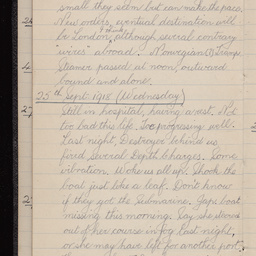 small they seem but can make the pace.
New orders, eventual destination will
be London, although several contrary
"wires" abroad. Norwegian (?) Tramp
Steamer passed at noon, outward
bound and alone.
25th Sept. 1918 (Wednesday)
Still in hospital, having a rest. Not
too bad this life. Leg progressing well.
Last night Destroyer behind us
fired several Depth Charges. Some
vibration. Woke us all up. Shook the
boat just like a leaf. Don't know
if they got the Submarine. Jap boat
missing this morning. Say she steered
out of her course in fog last night,
or she may have left for another port.